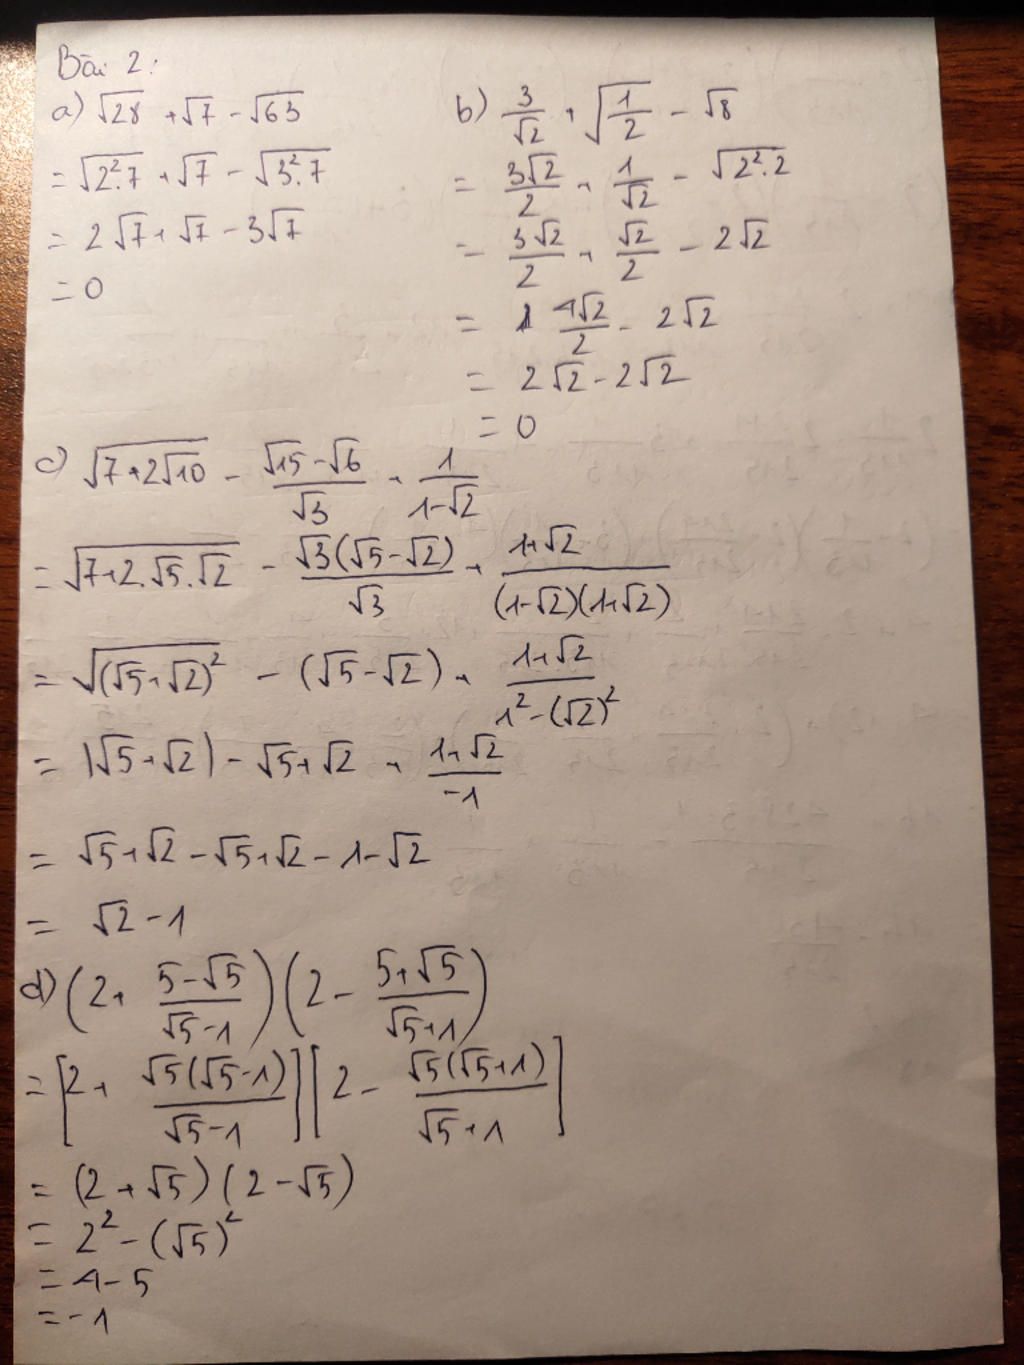 Bài 2:
a) √28 + √7 - √63
= √(2².7) + √7 - √(3².7)
= 2√7 + √7 - 3√7
= 0
b) 3/√2 + √(1/2) - √8
= 3√2/2 + 1/√2 - √(2².2)
= 3√2/2 + √2/2 - 2√2
= 4√2/2 - 2√2
= 2√2 - 2√2
= 0
c) √(7+2√10) - (√15-√6)/√3 + 1/(1-√2)
= √(7+2.√5.√2) - √3(√5-√2)/√3 + (1+√2)/((1-√2)(1+√2))
= √((√5+√2)²) - (√5-√2) + (1+√2)/(1²-(√2)²)
= |√5+√2| - √5+√2 + (1+√2)/(-1)
= √5+√2 - √5+√2 - 1 - √2
= √2 - 1
d) (2 + (5-√5)/(√5-1))(2 - (5+√5)/(√5+1))
= [2 + √5(√5-1)/(√5-1)][2 - √5(√5+1)/(√5+1)]
= (2+√5)(2-√5)
= 2² - (√5)²
= 4 - 5
= -1